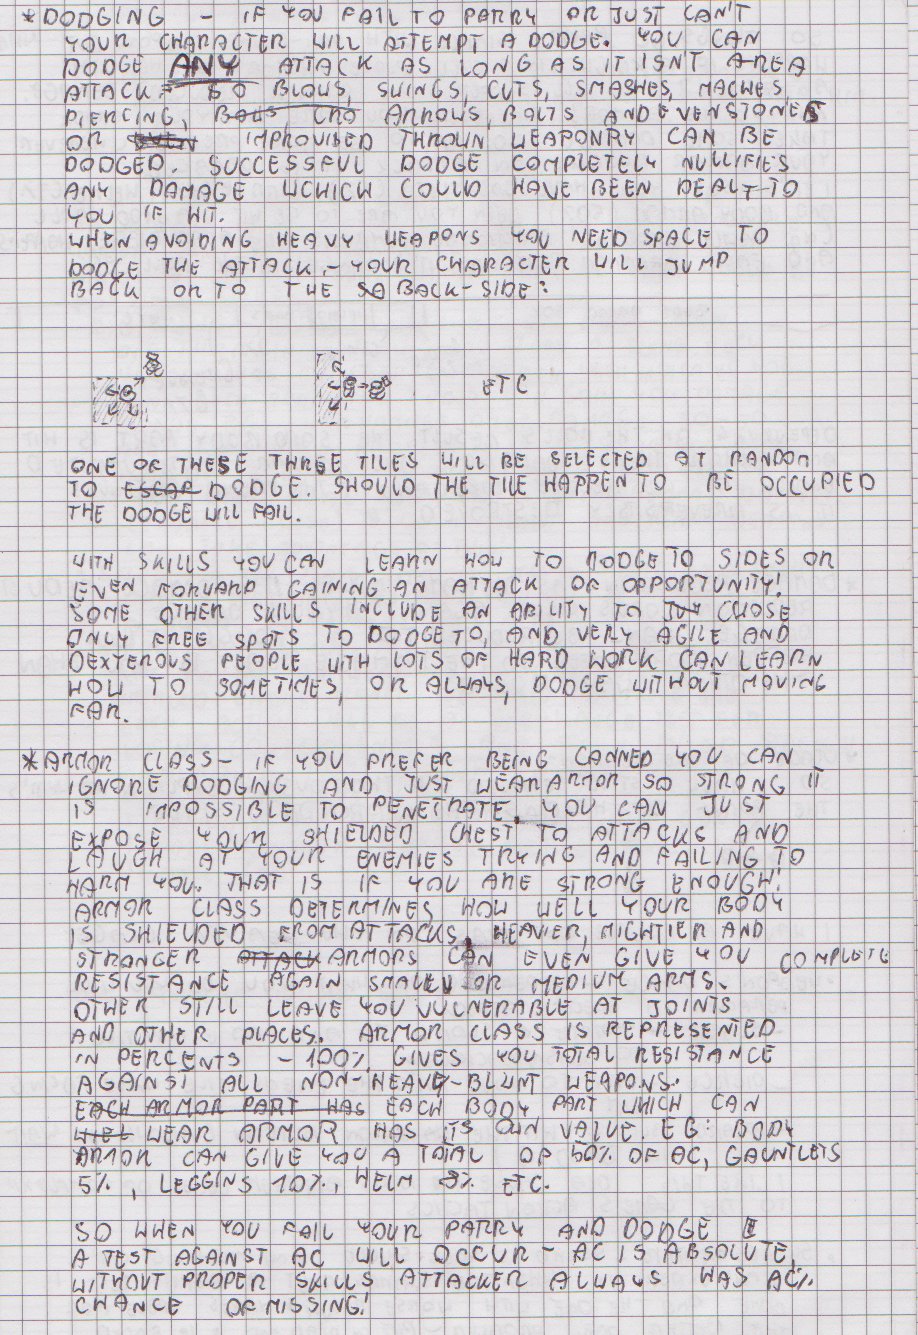 *DODGING - IF YOU FAIL TO PARRY OR JUST CAN'T
YOUR CHARACTER WILL ATTEMPT A DODGE. YOU CAN
DODGE ANY ATTACK AS LONG AS IT ISN'T AREA
ATTACK. SO BLOWS, SWINGS, CUTS, SMASHES, MACHES,
PIERCING, ARROWS, BOLTS AND EVEN STONES
OR EVEN IMPROVISED THROWN WEAPONRY CAN BE
DODGED. SUCCESSFUL DODGE COMPLETELY NULLIFIES
ANY DAMAGE WCHICH COULD HAVE BEEN DEALT TO
YOU IF HIT.
WHEN AVOIDING HEAVY WEAPONS YOU NEED SPACE TO
DODGE THE ATTACK - YOUR CHARACTER WILL JUMP
BACK OR TO THE BACK-SIDE:
ETC
ONE OF THESE THREE TILES WILL BE SELECTED AT RANDOM
TO ESCAP DODGE. SHOULD THE TILE HAPPEN TO BE OCCUPIED
THE DODGE WILL FAIL.
WITH SKILLS YOU CAN LEARN HOW TO DODGE TO SIDES OR
EVEN FORWARD GAINING AN ATTACK OF OPPORTUNITY!
SOME OTHER SKILLS INCLUDE AN ABILITY TO CHOSE
ONLY FREE SPOTS TO DODGE TO, AND VERY AGILE AND
DEXTEROUS PEOPLE WITH LOTS OF HARD WORK CAN LEARN
HOW TO SOMETIMES, OR ALWAYS, DODGE WITHOUT MOVING
FAR.
*ARMOR CLASS - IF YOU PREFER BEING CANNED YOU CAN
IGNORE DODGING AND JUST WEAR ARMOR SO STRONG IT
IS IMPOSSIBLE TO PENETRATE. YOU CAN JUST
EXPOSE YOUR SHIELDED CHEST TO ATTACKS AND
LAUGH AT YOUR ENEMIES TRYING AND FAILING TO
HARM YOU. THAT IS IF YOU ARE STRONG ENOUGH!
ARMOR CLASS DETERMINES HOW WELL YOUR BODY
IS SHIELDED FROM ATTACKS. HEAVIER, MIGHTIER AND
STRONGER ATTACK ARMORS CAN EVEN GIVE YOU COMPLETE
RESISTANCE AGAIN SMALL OR MEDIUM ARMS.
OTHER STILL LEAVE YOU VULNERABLE AT JOINTS
AND OTHER PLACES. ARMOR CLASS IS REPRESENTED
IN PERCENTS - 100% GIVES YOU TOTAL RESISTANCE
AGAINST ALL NON-HEAVY-BLUNT WEAPONS.
EACH ARMOR PART HAS EACH BODY PART WHICH CAN
WEAR ARMOR HAS ITS OWN VALUE. EG: BODY
ARMOR CAN GIVE YOU A TOTAL OF 50% OF AC, GAUNTLETS
5%, LEGGINS 10%, HELM % ETC.
SO WHEN YOU FAIL YOUR PARRY AND DODGE
A TEST AGAINST AC WILL OCCUR - AC IS ABSOLUTE,
WITHOUT PROPER SKILLS ATTACKER ALWAYS HAS AC%
CHANCE OF MISSING!